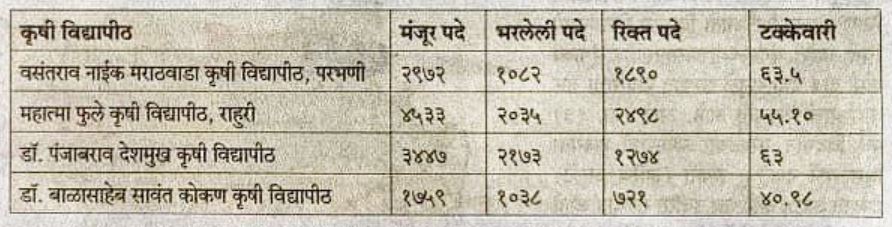 कृषी विद्यापीठ मंजूर पदे भरलेली पदे रिक्त पदे टक्केवारी
वसंतराव नाईक मराठवाडा कृषी विद्यापीठ, परभणी २९७२ १०८२ १८९० ६३.५
महात्मा फुले कृषी विद्यापीठ, राहुरी ४५३३ २०३५ २४९८ ५५.१०
डॉ. पंजाबराव देशमुख कृषी विद्यापीठ ३४४७ २१७३ १२७४ ६३
डॉ. बाळासाहेब सावंत कोकण कृषी विद्यापीठ १७५९ १०३८ ७२१ ४०.९८